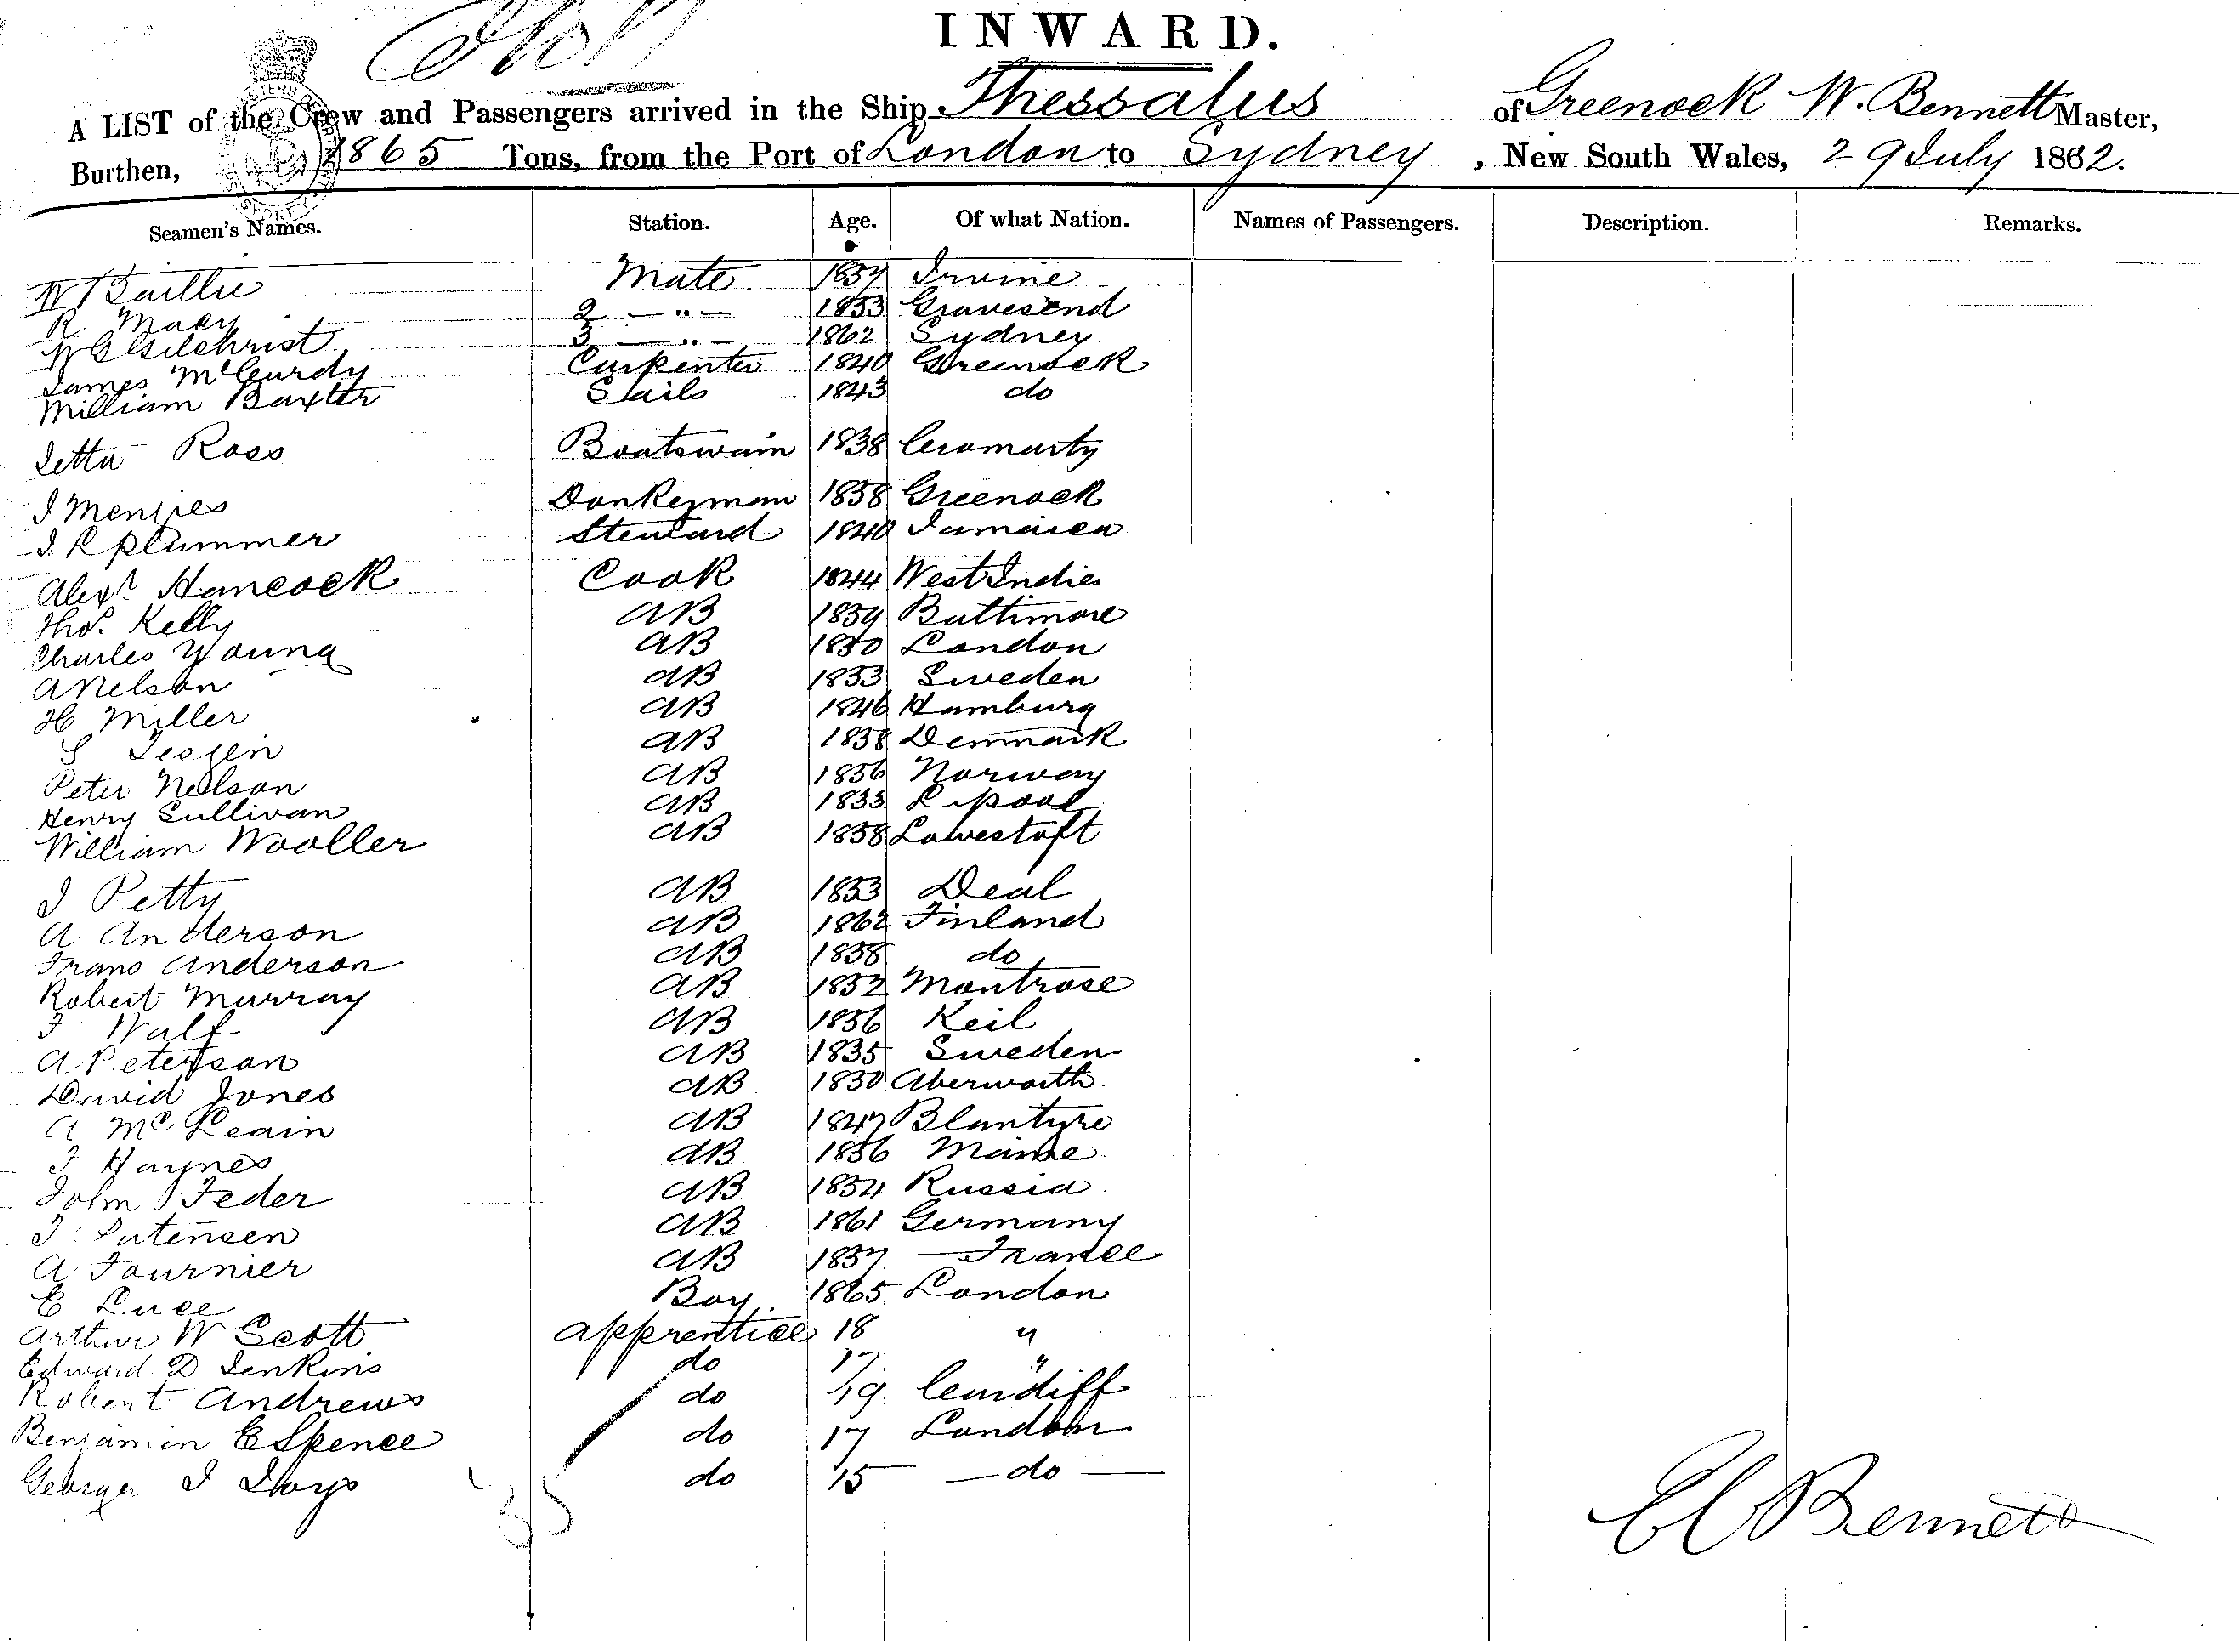 INWARD.
A LIST of the Crew and Passengers arrived in the Ship Thessalus of Greenock W. Bennett Master,
Burthen, 1865 Tons, from the Port of London to Sydney, New South Wales, 29 July 1882.
Seamen's Names. Station. Age. Of what Nation. Names of Passengers. Description. Remarks.
W Baillie Mate 1857 Irvine
R. Macy 2 — " — 1853 Gravesend
W G Gilchrist 3 — " — 1862 Sydney
James McCurdy Carpenter 1840 Greenock
William Baxter Sails 1843 do
Ross Boatswain 1838 Cromarty
J Menzies Donkeyman 1858 Greenock
J. R Plummer Steward 1840 Jamaica
Alexr Hancock Cook 1844 West Indies
Thos. Kelly AB 1859 Baltimore
Charles Young AB 1850 London
A Nelson AB 1853 Sweden
H Miller AB 1846 Hamburg
S AB 1858 Denmark
Peter Neilson AB 1856 Norway
Henry Sullivan AB 1833 L'pool
William Wooller AB 1858 Lowestoft
J Petty AB 1853 Deal
A Anderson AB 1862 Finland
Frans Anderson AB 1858 do
Robert Murray AB 1852 Montrose
F Walf AB 1856 Keil
A Peterson AB 1835 Sweden
David Jones AB 1830 Aberwaith
A McLeain AB 1847 Blantyre
J Haynes AB 1856 Maine
John Feder AB 1854 Russia
J AB 1861 Germany
A Fournier AB 1857 France
E Luce Boy. 1865 London
Arthur W Scott apprentice 18 "
Edward D Jenkins do 17 "
Robert Andrews do 19 Cardiff
Benjamin E Spence do 17 London
George J do 15 — do —
35
E C Bennett